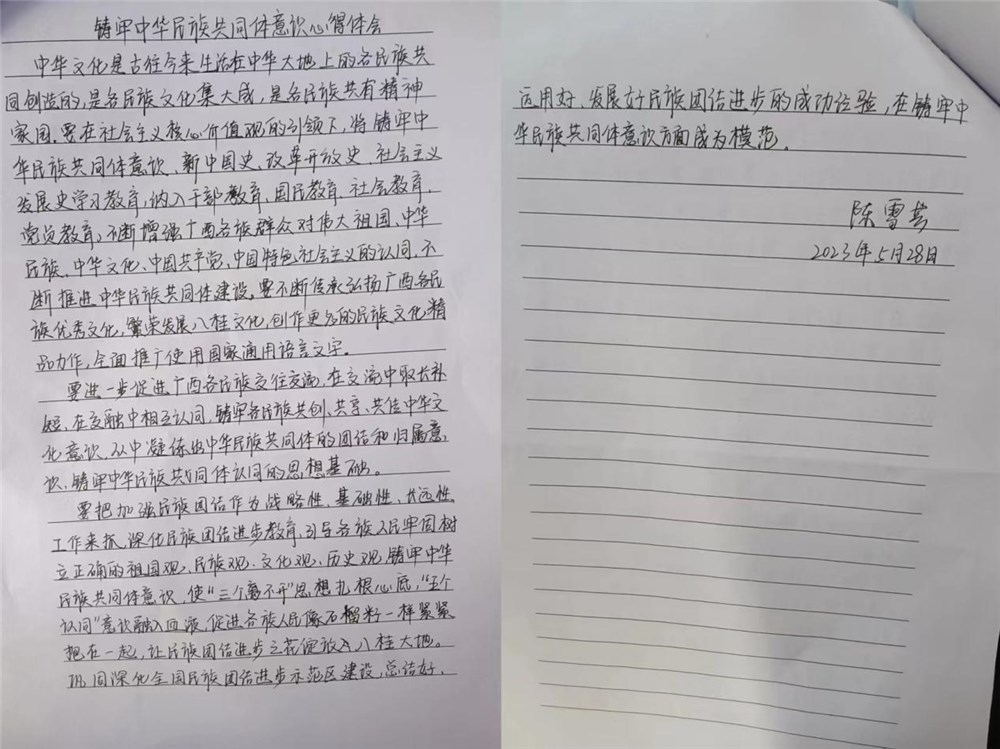 铸牢中华民族共同体意识心得体会
中华文化是古往今来生活在中华大地上的各民族共
同创造的,是各民族文化集大成,是各民族共有精神
家园。要在社会主义核心价值观的引领下,将铸牢中
华民族共同体意识、新中国史、改革开放史、社会主义
发展史学习教育,纳入干部教育、国民教育、社会教育、
党员教育,不断增强广西各族群众对伟大祖国、中华
民族、中华文化、中国共产党、中国特色社会主义的认同,不
断推进中华民族共同体建设。要不断传承弘扬广西各民
族优秀文化,繁荣发展八桂文化,创作更多的民族文化精
品力作,全面推广使用国家通用语言文字。
要进一步促进广西各民族交往交流,在交流中取长补
短,在交融中相互认同,铸牢各民族共创、共享、共传中华文
化意识,从中凝练出中华民族共同体的团结和归属意
识,铸牢中华民族共同体认同的思想基础。
要把加强民族团结作为战略性、基础性、长远性
工作来抓,深化民族团结进步教育,引导各族人民牢固树
立正确的祖国观、民族观、文化观、历史观,铸牢中华
民族共同体意识,使“三个离不开”思想扎根心底,“五个
认同”意识融入血液,促进各族人民像石榴籽一样紧紧
抱在一起,让民族团结进步之花绽放八桂大地。
巩固深化全国民族团结进步示范区建设,总结好、
运用好、发展好民族团结进步的成功经验,在铸牢中
华民族共同体意识方面成为模范。
陈雪芬
2023年5月28日